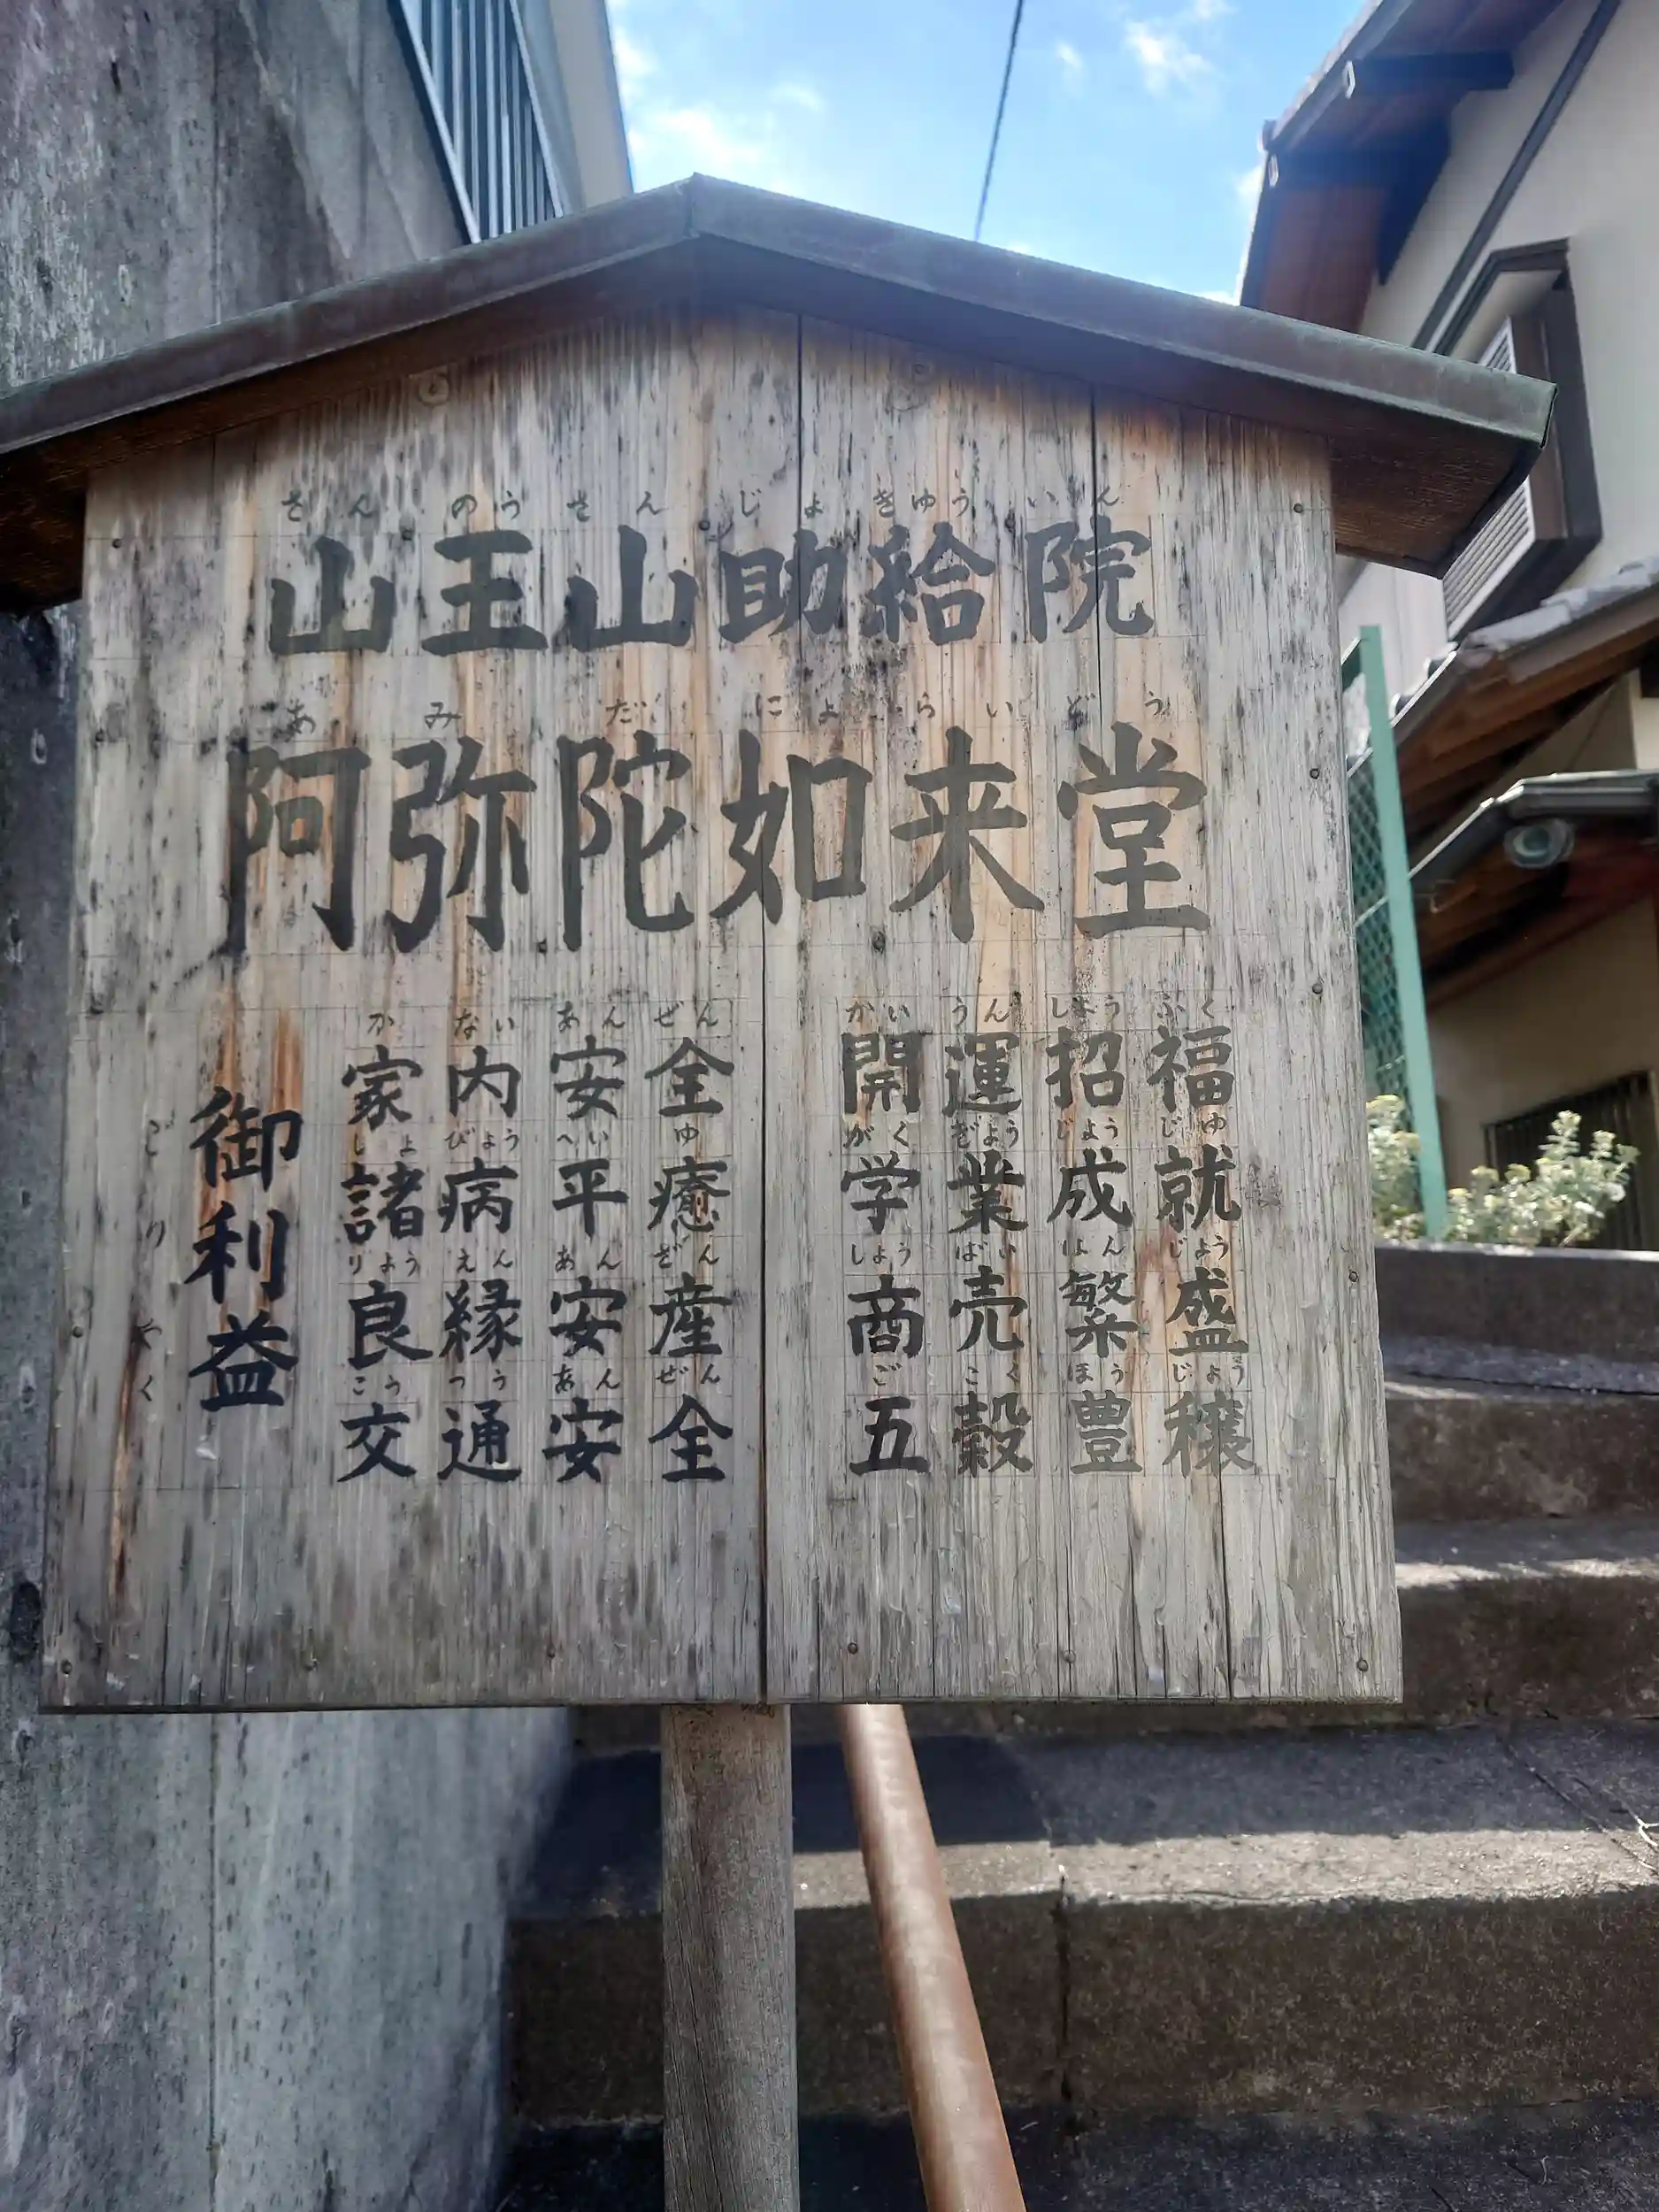 さんのうさんじょきゅういん
山王山助給院
あみだにょらいどう
阿弥陀如来堂
ごりやく
御利益
かないあんぜん
家内安全
しょびょうへいゆ
諸病平癒
りょうえんあんざん
良縁安産
こうつうあんぜん
交通安全
かいうんしょうふく
開運招福
がくぎょうじょうじゅ
学業成就
しょうばいはんじょう
商売繁盛
ごこくほうじょう
五穀豊穣